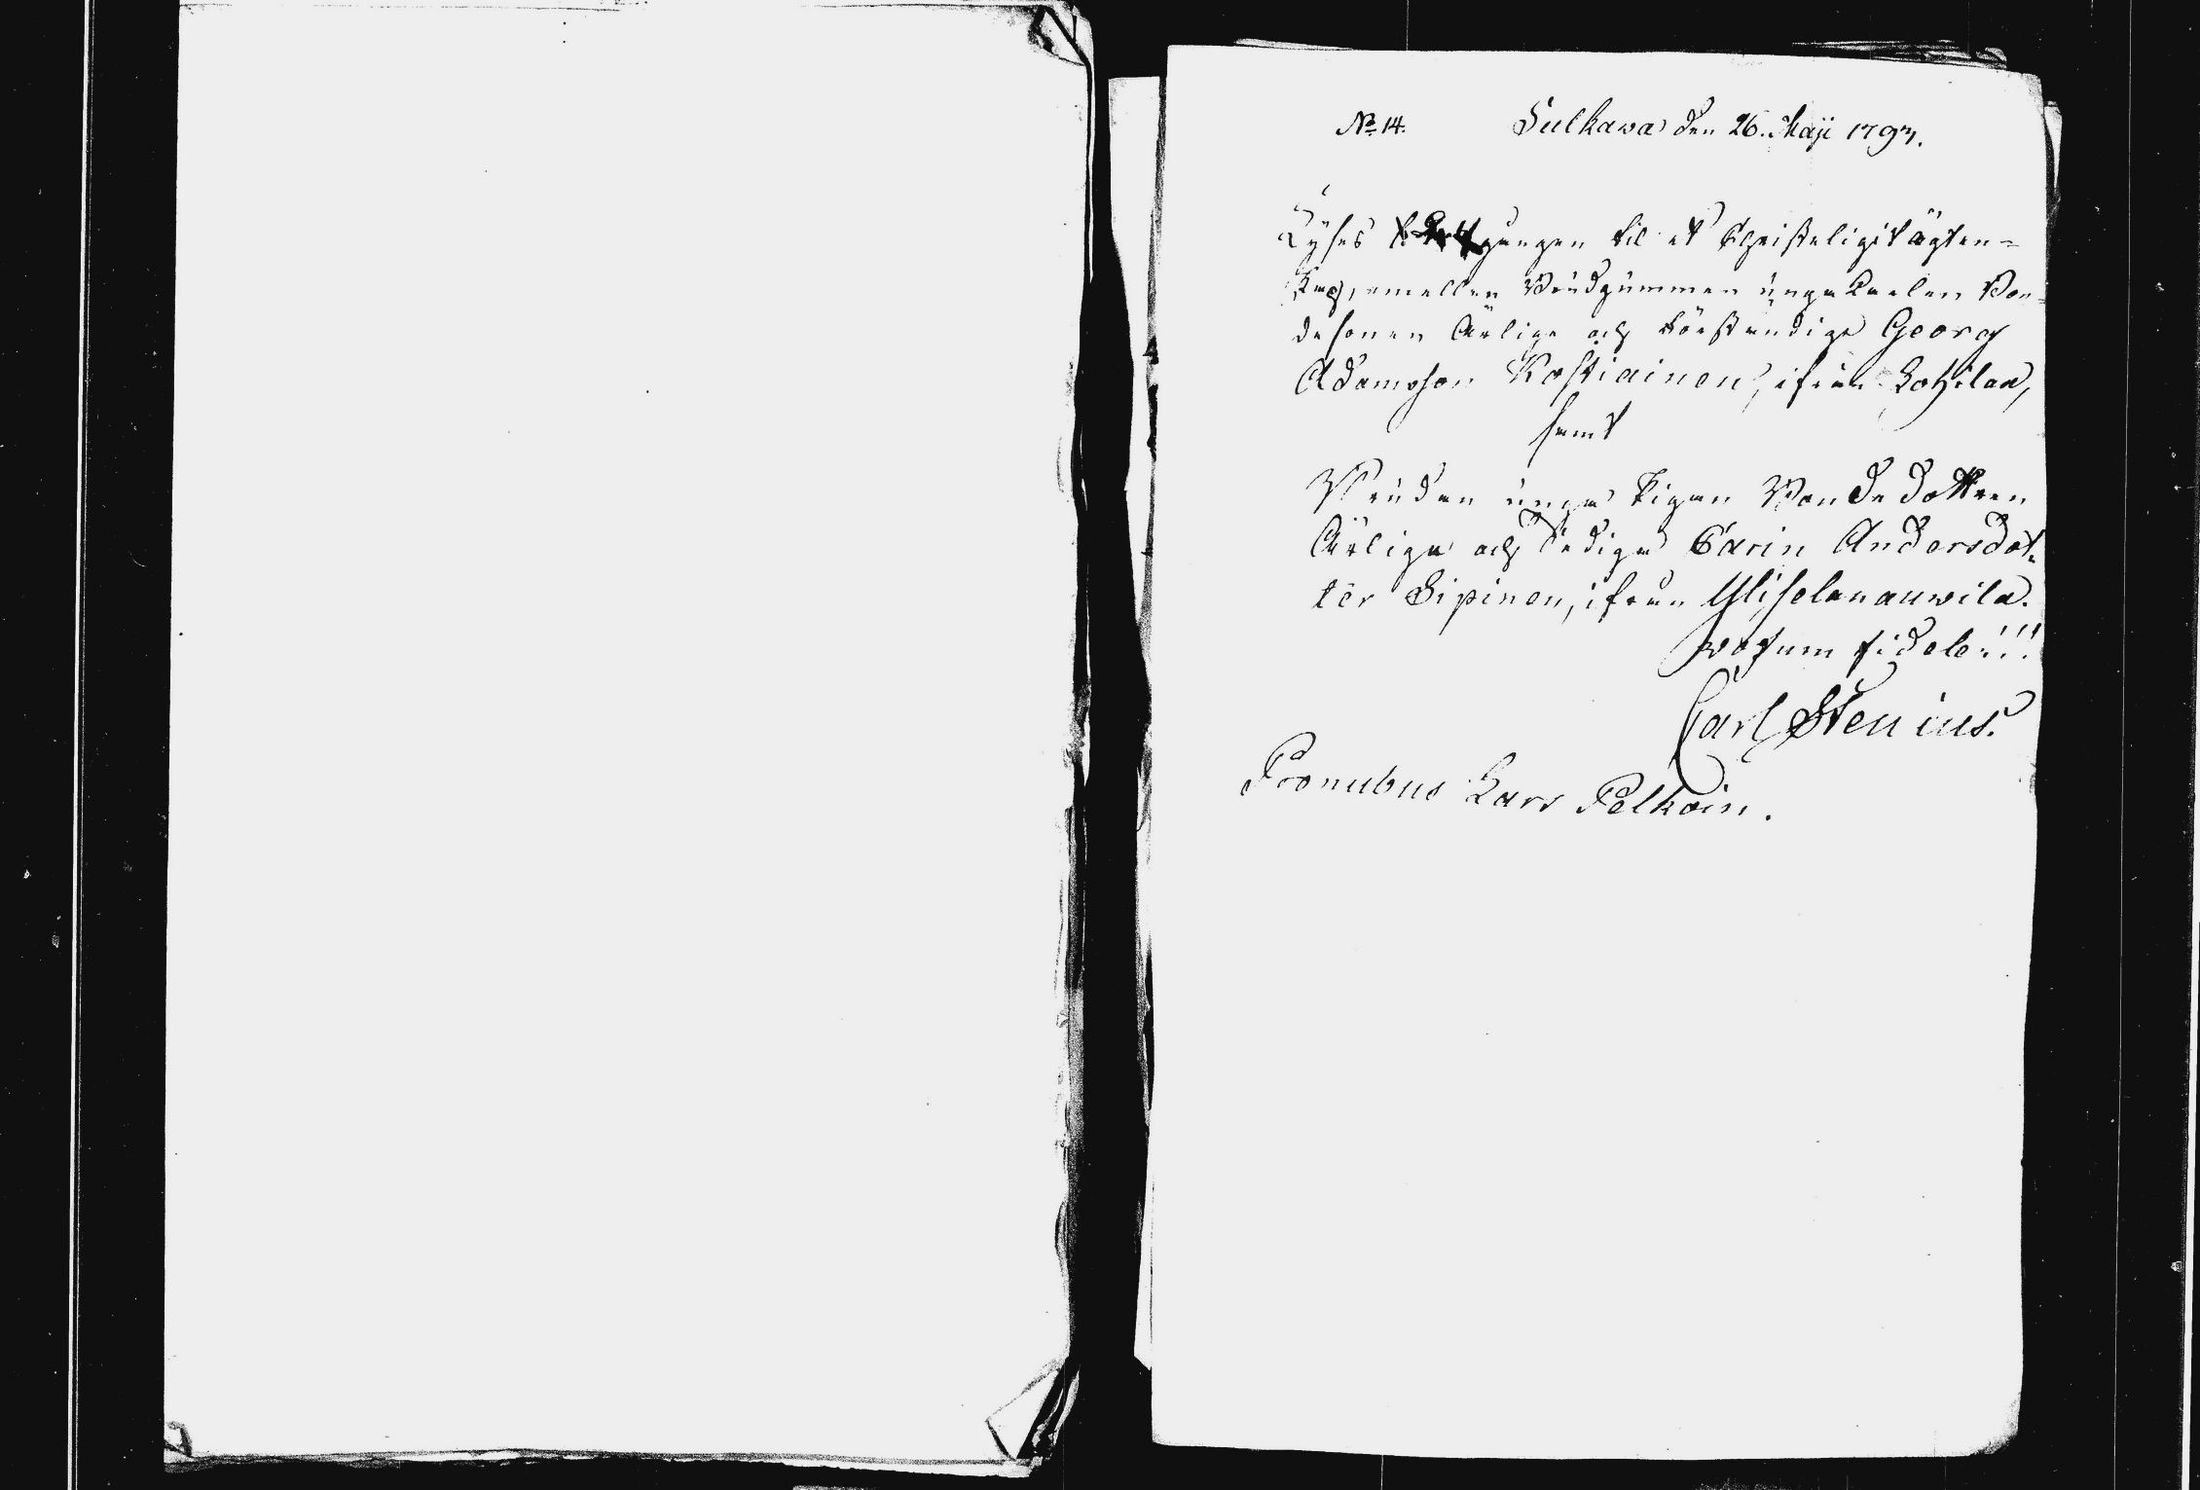 No 14. Sulkava den 26. Maji 1793.
Lyses gången til et Christeligit ägten=
skap, emellan Brudgummen unga Karlen Bon=
desonen Ärlige och Förståndige Georg
Adamsson Kostiainen, ifrån Lohilax,
samt
Bruden unga Pigan Bonde dottren
Ärliga och Sediga Carin Andersdot=
ter Sipinen, ifrån
votum fidele!!!
Carl Stenius.
Pronubus Lars Pelkoin.